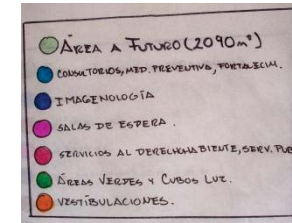 ÁREA A FUTURO (2090m²)
CONSULTORIOS, MED. PREVENTIVA, FORTALECIM.
IMAGENOLOGÍA
SALAS DE ESPERA.
SERVICIOS AL DERECHOHABIENTE, SERV. PUB
ÁREAS VERDES Y CUBOS LUZ.
VESTIBULACIONES.